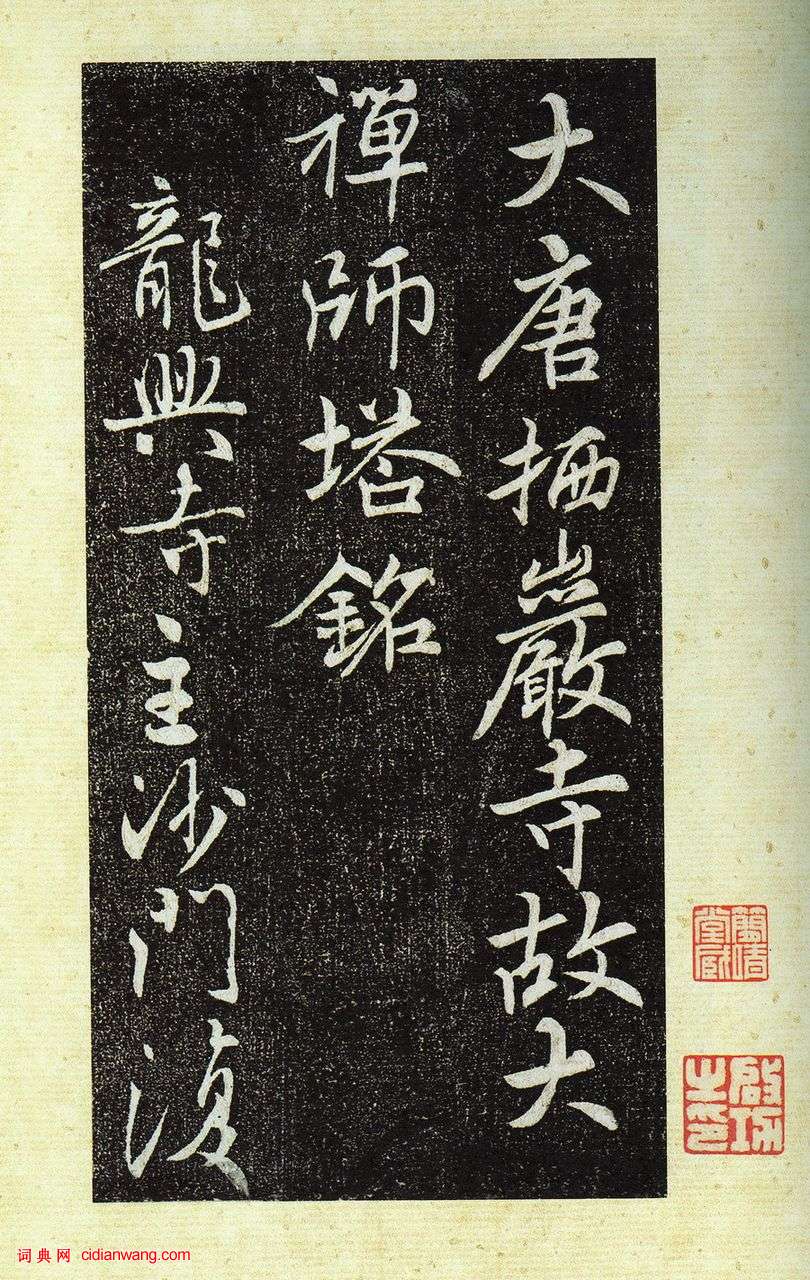 大唐栖巖寺故大
禪師塔銘
龍興寺主沙門復
啟功之印
词典网 cidianwang.com